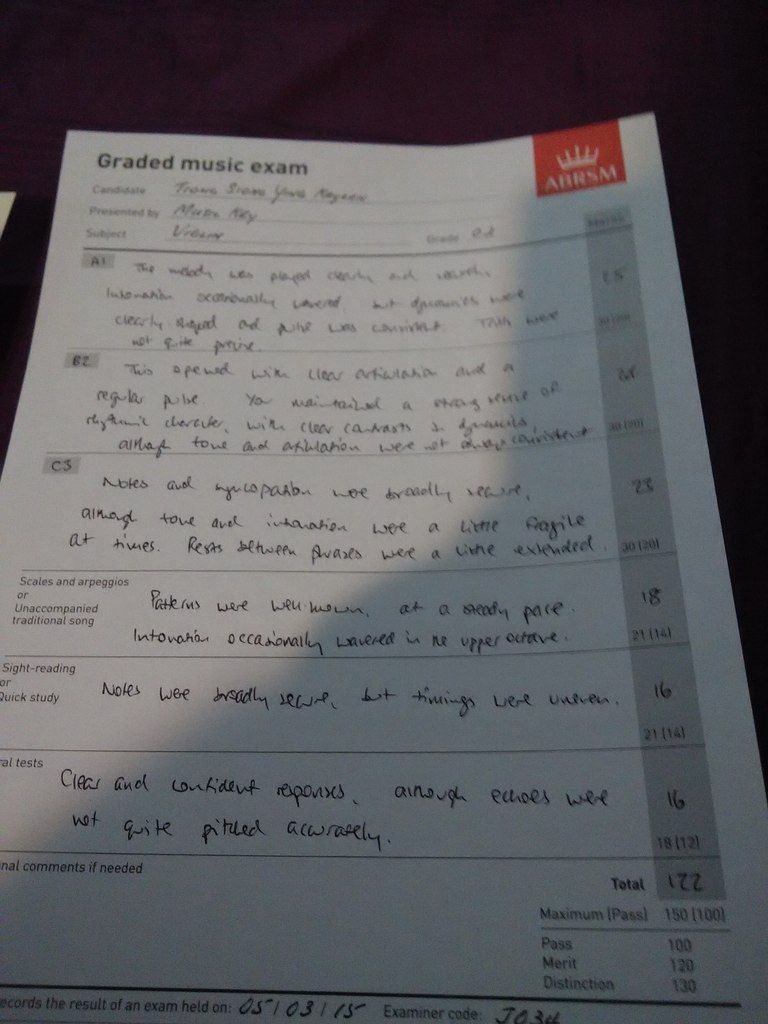 Graded music exam
ABRSM
Candidate
Presented by Key
Subject Violin Grade
Marks
A1 The melody was played clearly and securely.
Intonation occasionally wavered, but dynamics were
clearly shaped and pulse was consistent. were
not quite precise.
30 (20)
B2 This opened with clear articulation and a
regular pulse. You maintained a strong sense of
rhythmic character, with clear contrasts in dynamics,
although tone and articulation were not always consistent
30 (20)
C3 Notes and syncopation were broadly secure, 23
although tone and intonation were a little fragile
at times. Rests between phrases were a little extended. 30 (20)
Scales and arpeggios
or
Unaccompanied
traditional song
Patterns were well-known, at a steady pace. 18
Intonation occasionally wavered in the upper octave. 21 (14)
Sight-reading
or
Quick study
Notes were broadly secure, but timings were uneven. 16
21 (14)
al tests
Clear and confident responses, although echoes were 16
not quite pitched accurately. 18 (12)
nal comments if needed
Total 122
Maximum (Pass) 150 (100)
Pass 100
Merit 120
Distinction 130
ecords the result of an exam held on: 05/03/15 Examiner code: